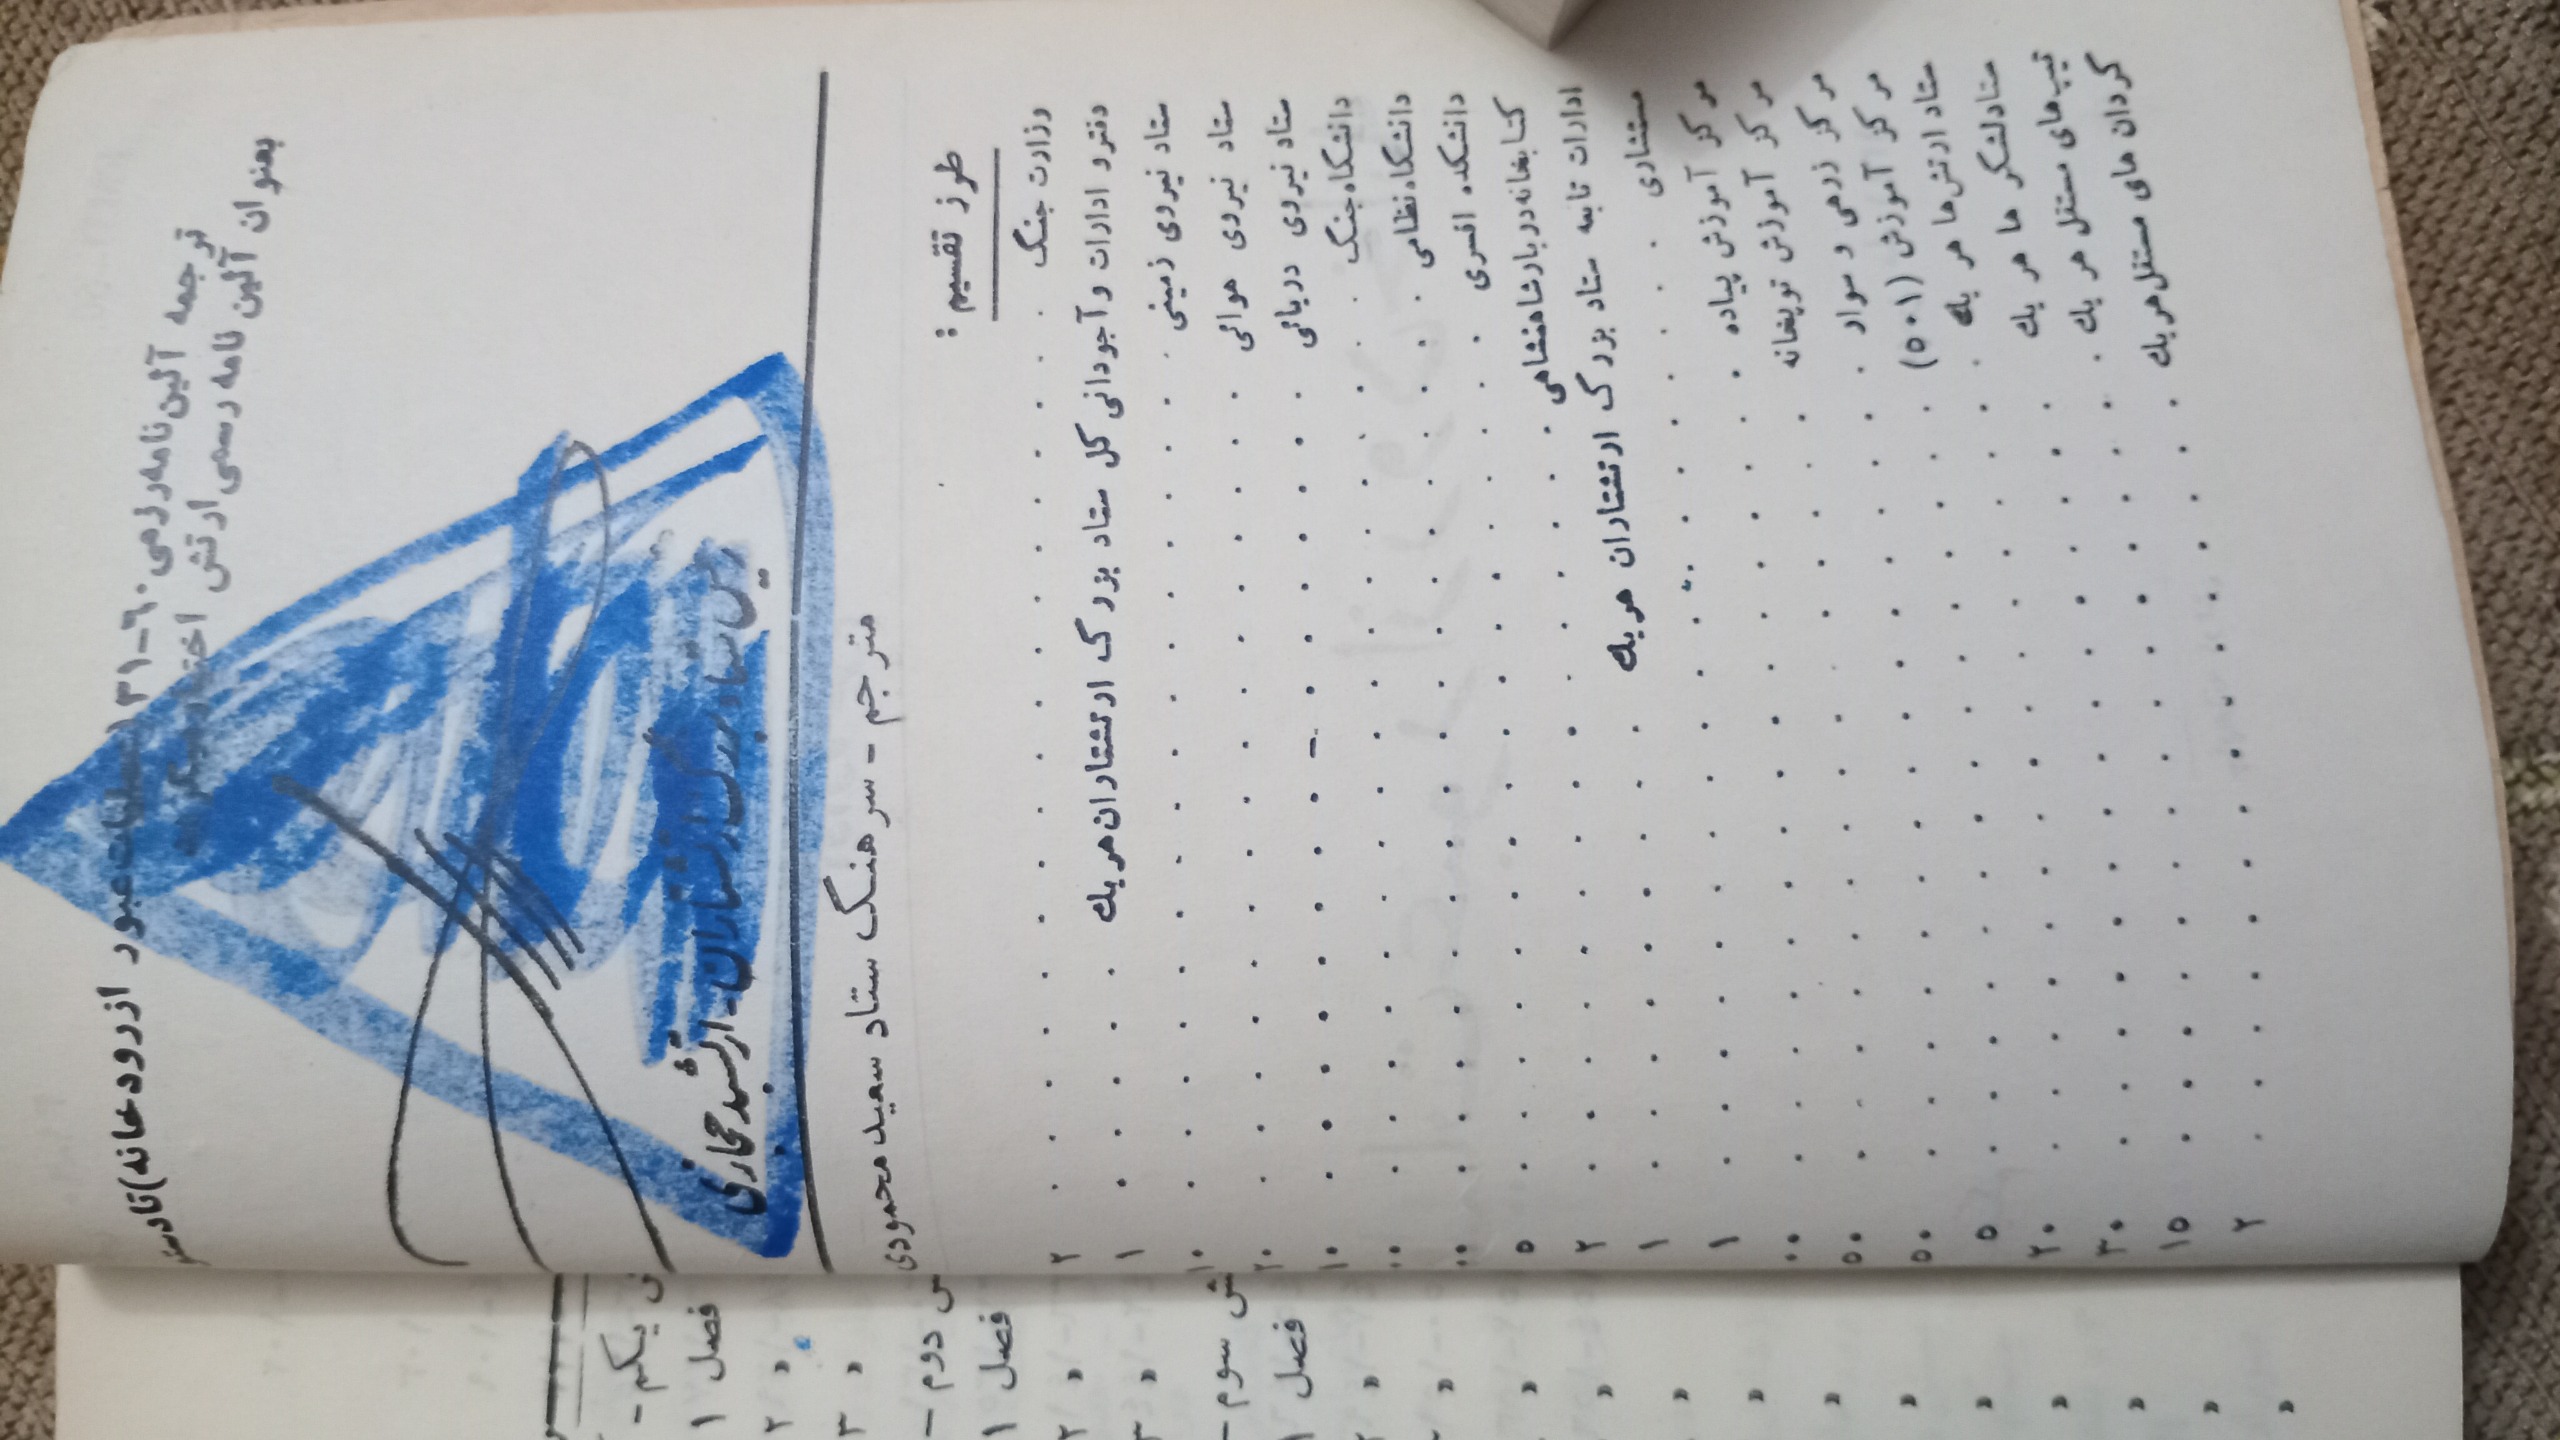 ترجمه آئین نامه رزمی ۶۰-۳۱ (عملیات عبور از رودخانه) تا دستور
بعنوان آئین نامه رسمی ارتش اختیار میگردد
رئیس ستاد بزرگ ارتشتاران - ارتشبد حجازی
مترجم - سرهنگ ستاد سعید محمودی
طرز تقسیم :
وزارت جنگ . . . ۲
دفتر و ادارات و آجودانی کل ستاد بزرگ ارتشتاران هر یك . . . ۱
ستاد نیروی زمینی . . . ۱۰
ستاد نیروی هوائی . . . ۲۰
ستاد نیروی دریائی . . . ۱۰
دانشگاه جنگ . . . ۰۰
دانشگاه نظامی . . . ۰۰
دانشکده افسری . . . ۵
کتابخانه دربار شاهنشاهی . . . ۲
ادارات تابعه ستاد بزرگ ارتشتاران هر یك . . . ۱
مستشاری . . . ۱
مرکز آموزش پیاده . . . ۰۰
مرکز آموزش توپخانه . . . ۵۰
مرکز زرهی و سوار . . . ۵۰
مرکز آموزش (۵۰۱) . . . ۵
ستاد ارتش‌ها هر یك . . . ۲۰
ستاد لشگر ها هر یك . . . ۳۰
تیپ‌های مستقل هر یك . . . ۱۵
گردان های مستقل هر یك . . . ۲
یکم -
فصل ۱
« ۲
« ۳
دوم -
فصل ۱
« ۲
« ۳
سوم -
فصل ۱